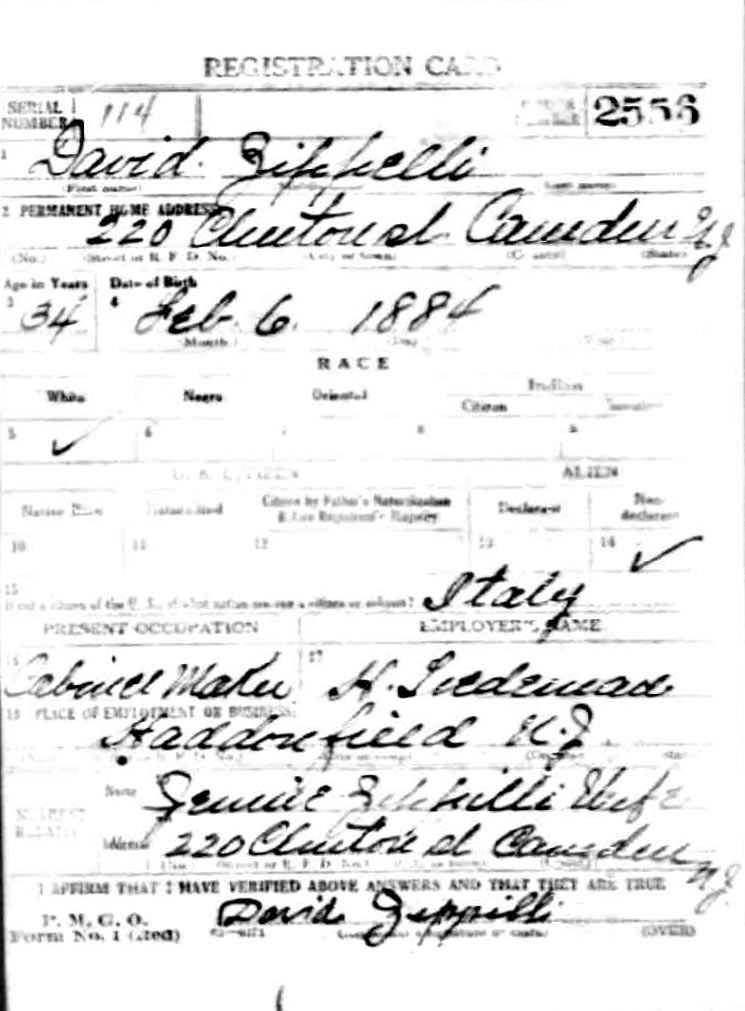 REGISTRATION CARD
SERIAL NUMBER 114 NUMBER 2556
1 David Zippelli
(First name) (Last name)
2 PERMANENT HOME ADDRESS:
220 Clinton st Camden NJ
(No.) (Street or R. F. D. No.) (City or town) (County) (State)
Age in Years Date of Birth
3 34 4 Feb. 6. 1884
(Month.) (Day.) (Year.)
RACE
White Negro Oriental Indian
Citizen
5 ✓ 6 7 8 9
U. S. CITIZEN ALIEN
Native Born Naturalized Citizen by Father's Naturalization Before Registrant's Majority Declarant Non-declarant
10 11 12 13 14 ✓
15
If not a citizen of the U. S., of what nation are you a citizen or subject? Italy
PRESENT OCCUPATION EMPLOYER'S NAME
16 Cabinet Maker 17 H.
18 PLACE OF EMPLOYMENT OR BUSINESS:
Haddonfield N.J
(No.) (Street or R. F. D. No.) (City or town) (County) (State)
NEAREST RELATIVE Name Jennie Zippilli Wife
Address 220 Clinton st Camden NJ
(No.) (Street or R. F. D. No.) (City or town)
I AFFIRM THAT I HAVE VERIFIED ABOVE ANSWERS AND THAT THEY ARE TRUE
P. M. G. O.
Form No. 1 (Red) David Zeppilli
(OVER)